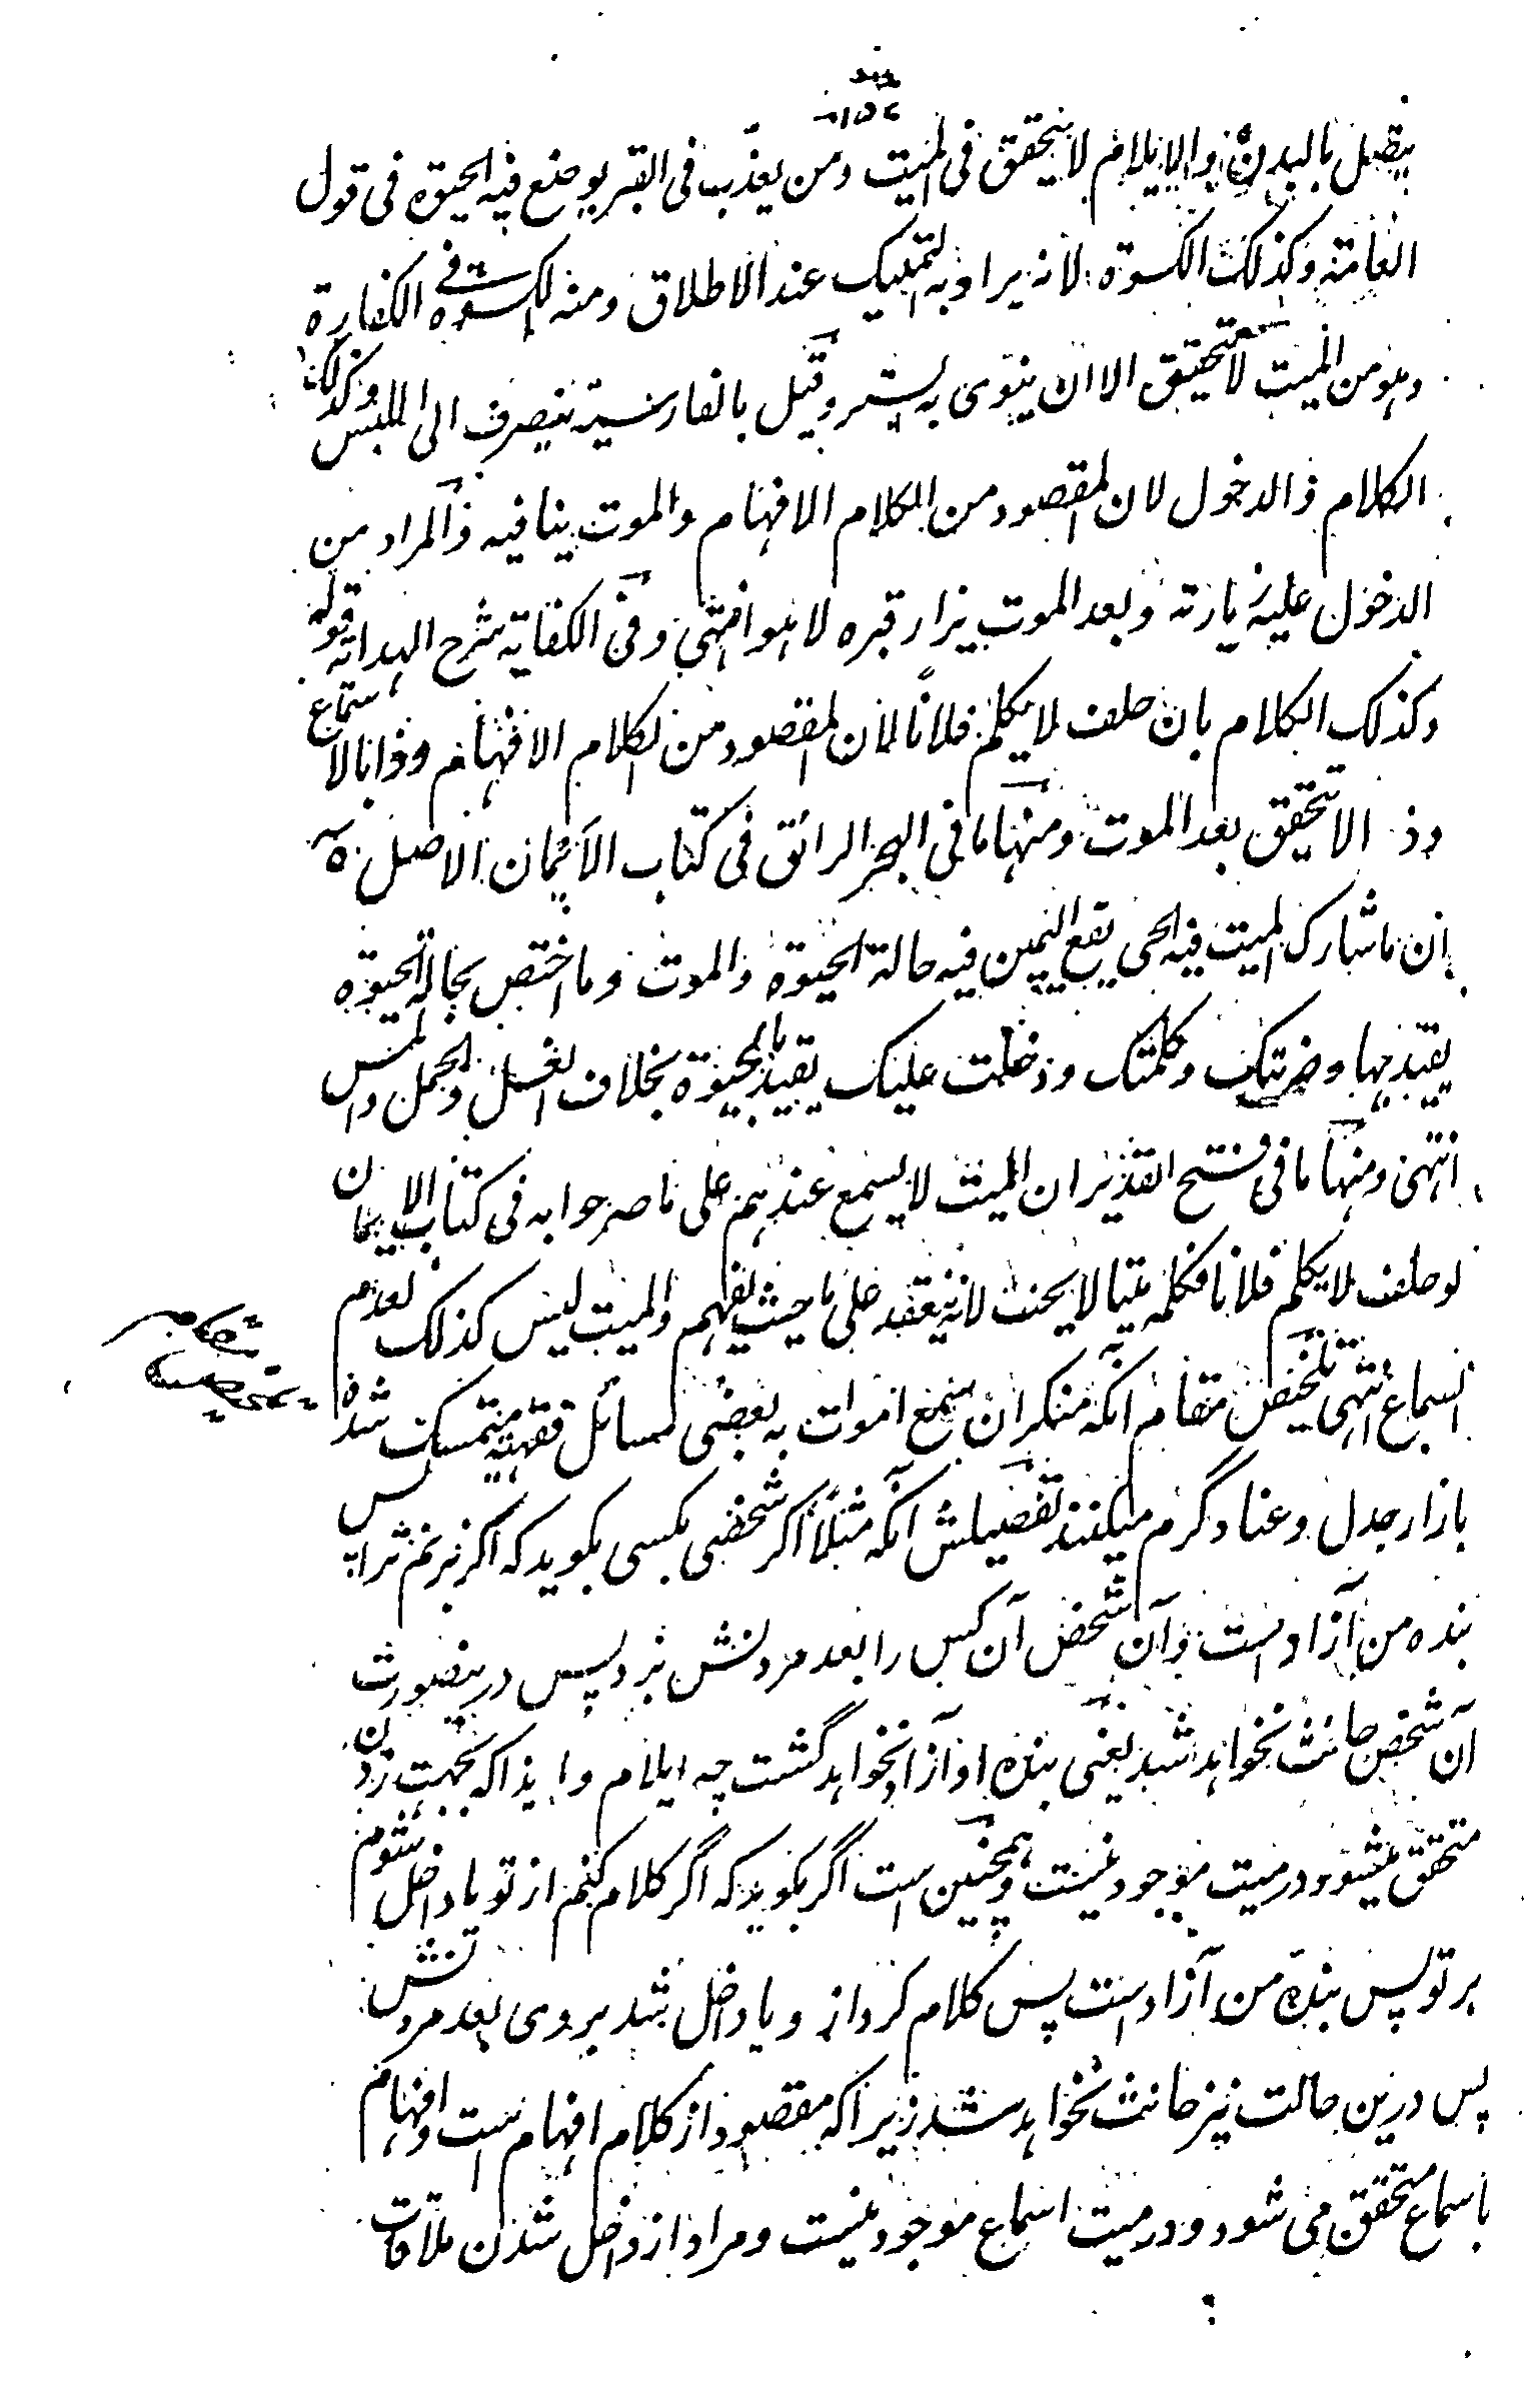 يتصل بالبدن والايلام لا يتحقق فى الميت ومن يعذب فى القبر يوضع فيه الحيوة فى قول
العامة وكذلك الكسوة لانه يراد به التمليك عند الاطلاق ومنه الكسوة فى الكفارة
وهو من الميت لا يتحقق الا ان ينوى به الستر وقيل بالفارسية ينصرف الى اللبس وكذلك
الكلام والدخول لان المقصود من الكلام الافهام والموت ينافيه والمراد من
الدخول عليه زيارته وبعد الموت يزار قبره لا هو انتهى وفى الكفاية شرح الهداية قوله
وكذلك الكلام بان حلف لا يكلم فلانًا لان المقصود من الكلام الافهام وذا بالاستماع
وذا لا يتحقق بعد الموت ومنها ما فى البحر الرائق فى كتاب الأيمان الاصل
ان ما شارك الميت فيه الحى يقع اليمين فيه حالة الحيوة والموت وما اختص بحالة الحيوة
يقيد بها وضربتك وكلمتك ودخلت عليك يقيد بالحيوة بخلاف الغسل والحمل والمس
انتهى ومنها ما فى فتح القدير ان الميت لا يسمع عندهم على ما صرحوا به فى كتاب الايمان
لو حلف لا يكلم فلانا فكلمه ميتا لا يحنث لانه ينعقد على ما حيث يفهم والميت ليس كذلك لعدم
السماع انتهى تلخيص مقام آنكه منكران سمع اموات به بعضى مسائل فقهيه متمسك شده
بازار جدل وعناد گرم ميكنند تفصيلش آنكه مثلاً اگر شخصى بكسى بگويد كه اگر بزنم ترا پس
بنده من آزاد است وآن شخص آن كس را بعد مردنش بزد پس درينصورت
آن شخص حانث نخواهد شد يعنى بنده او آزاد نخواهد گشت چه ايلام وايذا كه بجهت زدن
متحقق ميشود در ميت موجود نيست وهمچنين است اگر بگويد كه اگر كلام كنم از تو يا داخل شوم
بر تو پس بنده من آزاد است پس كلام كرد از و يا داخل شد بر وى بعد مردنش
پس درين حالت نيز حانث نخواهد شد زيرا كه مقصود از كلام افهام است وافهام
باسماع متحقق مى شود ودر ميت اسماع موجود نيست ومراد از داخل شدن ملاقات